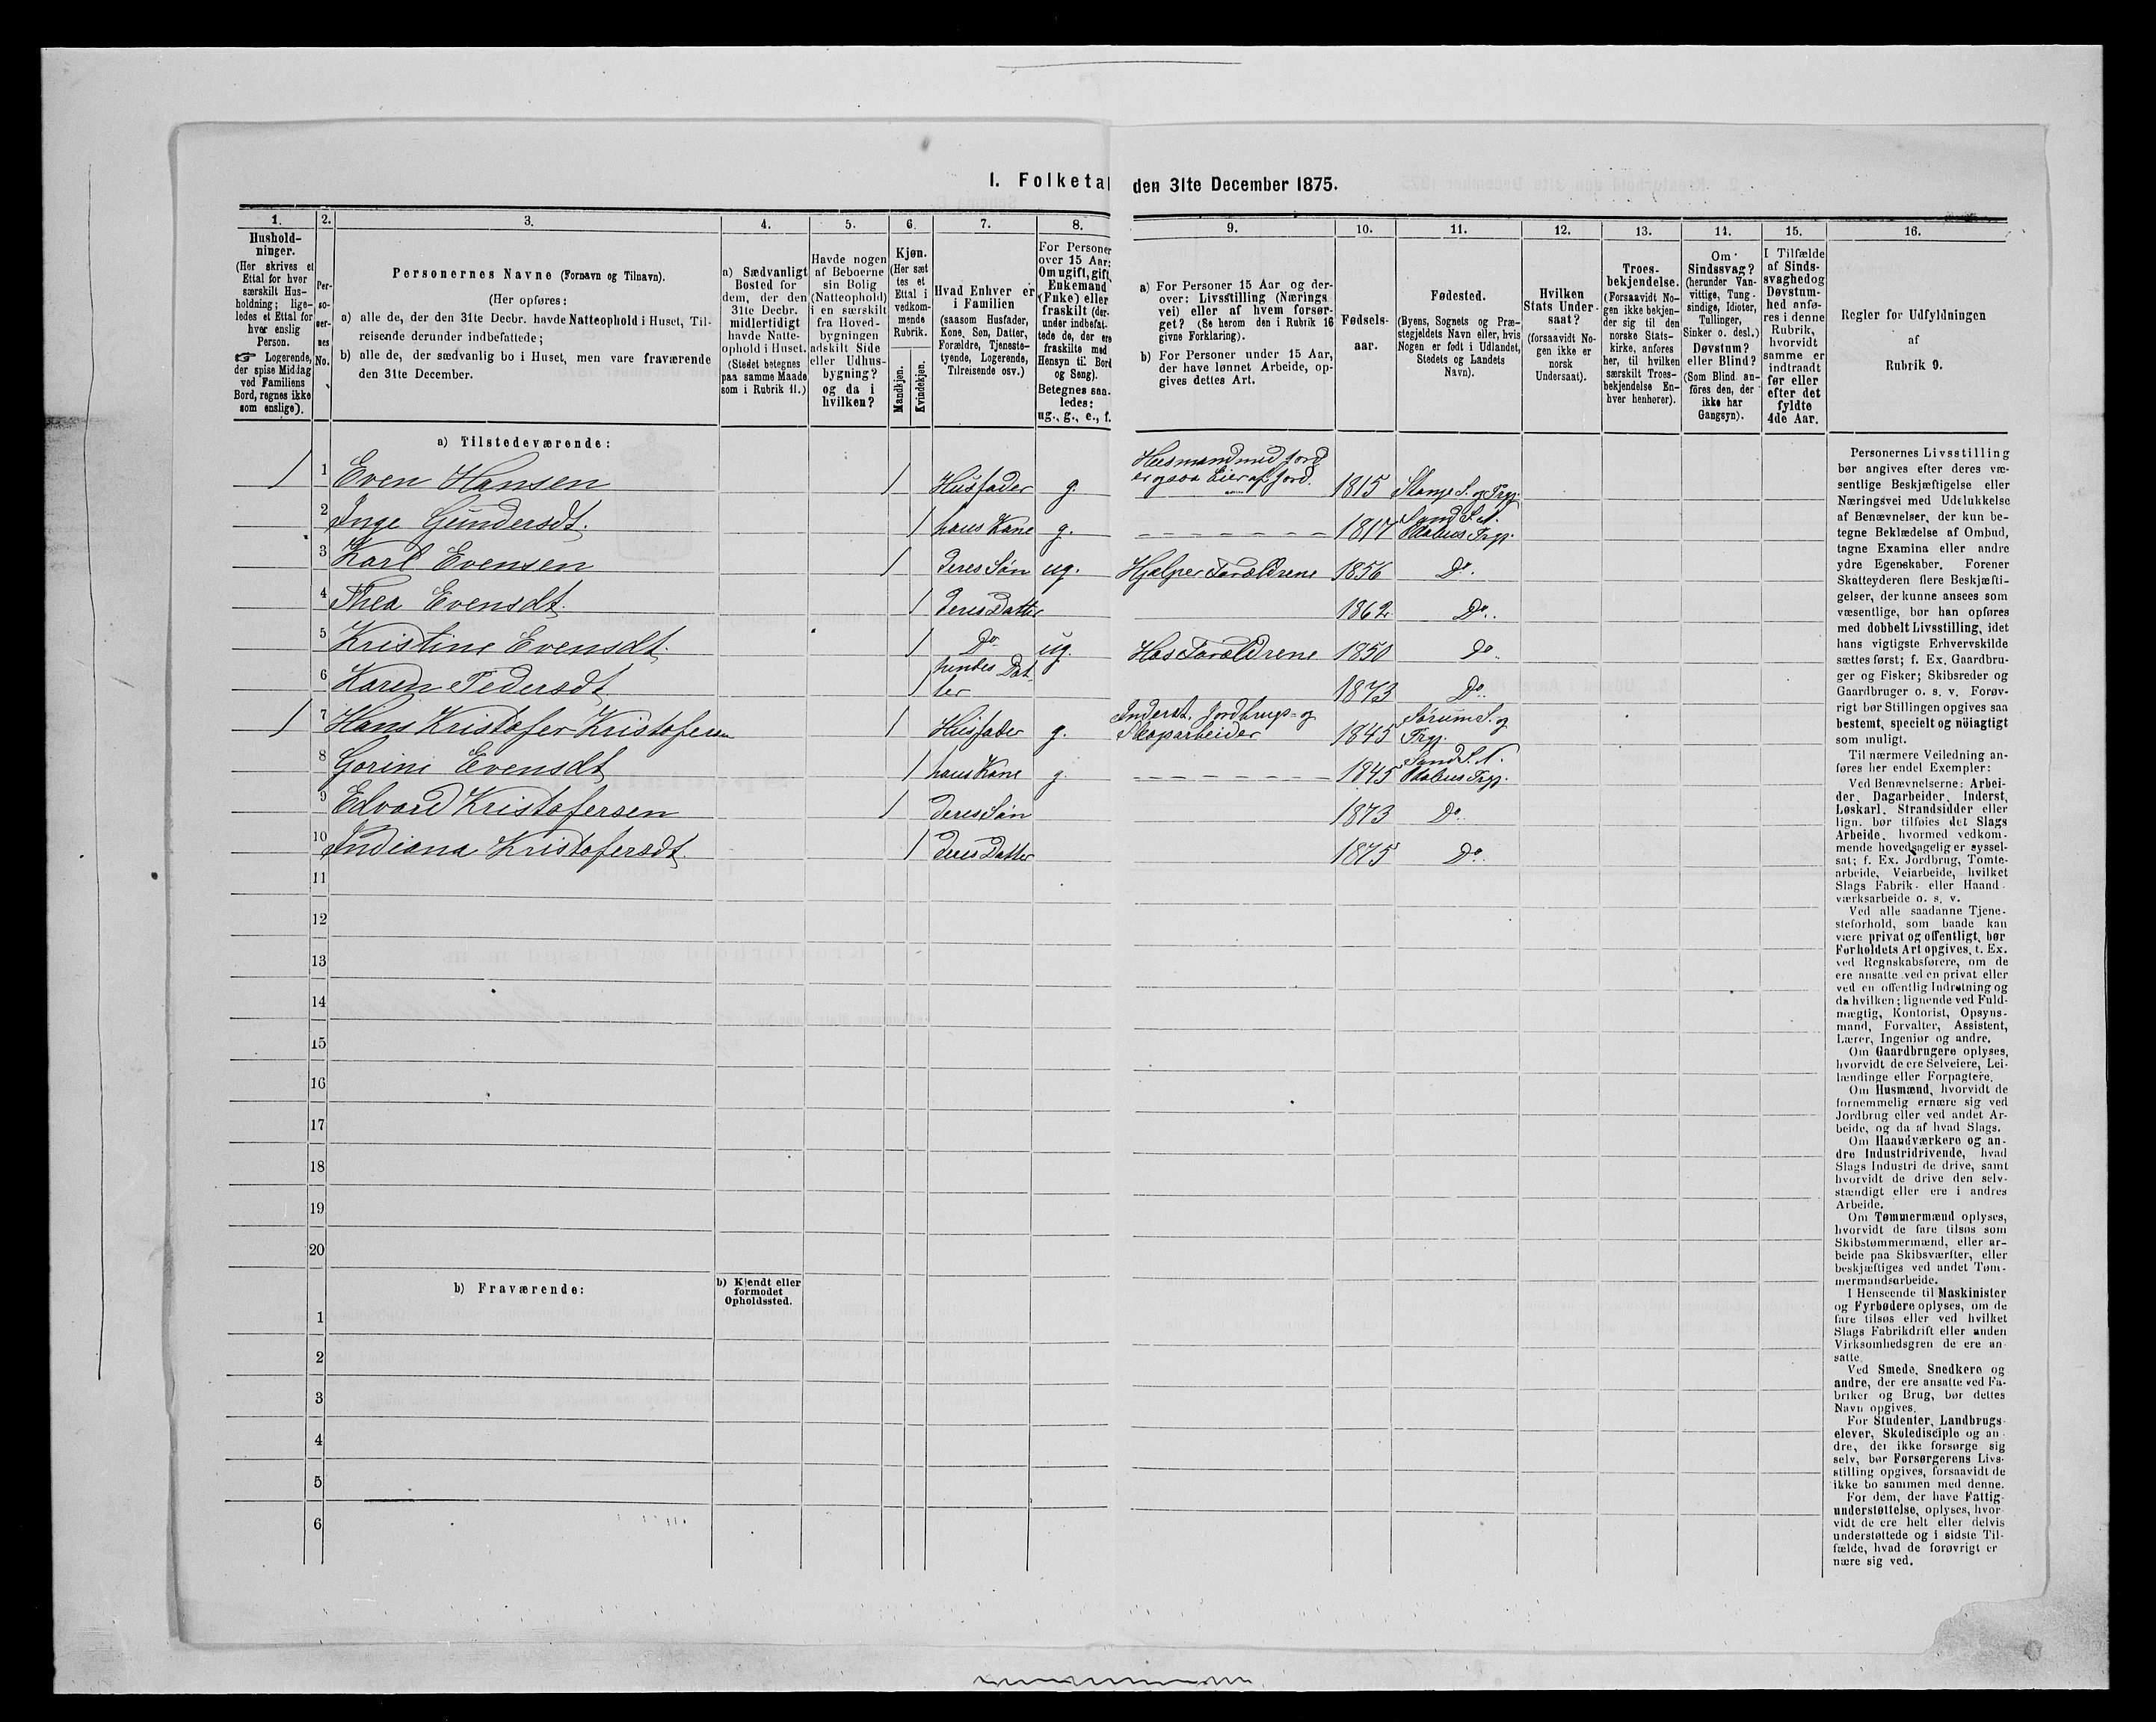 I. Folketal den 31te December 1875.
1.
2.
3.
4.
5.
6.
7.
8.
9.
10.
11.
12.
13.
14.
15.
16.
Hushold-
ninger.
(Her skrives et
Ettal for hver
særskilt Hus-
holdning; lige-
ledes et Ettal for
hver enslig
Person.
☞ Logerende,
der spise Middag
ved Familiens
Bord, regnes ikke
som enslige).
Per-
so-
ner-
nes
No.
Personernes Navne (Fornavn og Tilnavn).
(Her opføres:
a) alle de, der den 31te Decbr. havde Natteophold i Huset, Til-
reisende derunder indbefattede;
b) alle de, der sædvanlig bo i Huset, men vare fraværende
den 31te December.
a) Sædvanligt
Bosted for
dem, der den
31te Decbr.
midlertidigt
havde Natte-
ophold i Huset.
(Stedet betegnes
paa samme Maade
som i Rubrik 11.)
Havde nogen
af Beboerne
sin Bolig
(Natteophold)
i en særskilt
fra Hoved-
bygningen
adskilt Side
eller Udhus-
bygning?
og da i
hvilken?
Kjøn.
(Her sæt
tes et
Ettal i
vedkom-
mende
Rubrik.
Mandkjøn.
Kvindekjøn.
Hvad Enhver er
i Familien
(saasom Husfader,
Kone, Søn, Datter,
Forældre, Tjeneste-
tyende, Logerende,
Tilreisende osv.)
For Personer
over 15 Aar:
Om ugift, gift,
Enkemand
(Enke) eller
fraskilt (der-
under indbefat-
tede de, der ere
fraskilte med
Hensyn til Bord
og Seng).
Betegnes saa-
ledes:
ug., g., e., f.
a) For Personer 15 Aar og der-
over: Livsstilling (Nærings
vei) eller af hvem forsør-
get? (Se herom den i Rubrik 16
givne Forklaring).
b) For Personer under 15 Aar,
der have lønnet Arbeide, op-
gives dettes Art.
Fødsels-
aar.
Fødested.
(Byens, Sognets og Præ-
stegjeldets Navn eller, hvis
Nogen er født i Udlandet,
Stedets og Landets
Navn).
Hvilken
Stats Under-
saat?
(forsaavidt No-
gen ikke er
norsk
Undersaat).
Troes-
bekjendelse.
(Forsaavidt No-
gen ikke bekjen-
der sig til den
norske Stats-
kirke, anføres
her, til hvilken
særskilt Troes-
bekjendelse En-
hver henhører).
Om
Sindssvag?
(herunder Van-
vittige, Tung-
sindige, Idioter,
Tullinger,
Sinker o. desl.)
Døvstum?
eller Blind?
(Som Blind. an-
føres den, der
ikke har
Gangsyn).
I Tilfælde
af Sinds-
svaghed og
Døvstum-
hed anfø-
res i denne
Rubrik,
hvorvidt
samme er
indtraadt
før eller
efter det
fyldte
4de Aar.
Regler for Udfyldningen
af
Rubrik 9.
a) Tilstedeværende:
1 1 Even Hansen 1 Husfader g. Husmand med Jord er ogsaa Eier af Jord. 1815 Stange S. og Prgj.
2 Inge Gundersdt. 1 hans Kone g. 1817 Sand S. N. Odalens Prgj.
3 Karl Evensen 1 deres Søn ug. Hjelper Forældrene 1856 Do.
4 Thea Evensdt. 1 deres Datter 1862 Do.
5 Kristine Evensdt. 1 Do ug. Hos Forældrene 1850 Do.
6 Karen Pedersdt 1 hendes Datter 1873 Do.
1 7 Hans Kristofer Kristofersen 1 Husfader g. Inderst. Jordbrugs- og Skovarbeider 1845 Sørum S. og Prgj.
8 Gorine Evensdt 1 hans Kone g. 1845 Sand S. N. Odalens Prgj.
9 Edvard Kristofersen 1 deres Søn 1873 Do.
10 Indiana Kristofersdt. 1 deres Datter 1875 Do.
11
12
13
14
15
16
17
18
19
20
b) Fraværende:
b) Kjendt eller
formodet
Opholdssted.
1
2
3
4
5
6
Personernes Livsstilling
bør angives efter deres væ-
sentlige Beskjæftigelse eller
Næringsvei med Udelukkelse
af Benævnelser, der kun be-
tegne Beklædelse af Ombud,
tagne Examina eller andre
ydre Egenskaber. Forener
Skatteyderen flere Beskjæfti-
gelser, der kunne ansees som
væsentlige, bør han opføres
med dobbelt Livsstilling, idet
hans vigtigste Erhvervskilde
sættes først; f. Ex. Gaardbru-
ger og Fisker; Skibsreder og
Gaardbruger o. s. v. Forøv-
rigt bør Stillingen opgives saa
bestemt, specielt og nöiagtigt
som muligt.
Til nærmere Veiledning an-
føres her endel Exempler:
Ved Benævnelserne: Arbei-
der, Dagarbeider, Inderst,
Løskarl, Strandsidder eller
lign. bør tilføies det Slags
Arbeide, hvormed vedkom-
mende hovedsagelig er syssel-
sat; f. Ex. Jordbrug, Tomte-
arbeide, Veiarbeide, hvilket
Slags Fabrik- eller Haand-
værksarbeide o. s. v.
Ved alle saadanne Tjene-
steforhold, som baade kan
være privat og offentligt, bør
Forholdets Art opgives, t. Ex.
ved Regnskabsførere, om de
ere ansatte ved en privat eller
ved en offentlig Indretning og
da hvilken; lignende ved Fuld-
mægtig, Kontorist, Opsyns-
mand, Forvalter, Assistent,
Lærer, Ingeniør og andre.
Om Gaardbrugere oplyses,
hvorvidt de ere Selveiere, Lei-
lændinge eller Forpagtere.
Om Husmænd, hvorvidt de
fornemmelig ernære sig ved
Jordbrug eller ved andet Ar-
beide, og da af hvad Slags.
Om Haandværkere og an-
dre Industridrivende, hvad
Slags Industri de drive, samt
hvorvidt de drive den selv-
stændigt eller ere i andres
Arbeide.
Om Tømmermænd oplyses,
hvorvidt de fare tilsøs som
Skibstømmermænd, eller ar-
beide paa Skibsværfter, eller
beskjæftiges ved andet Tøm-
mermandsarbeide.
I Henseende til Maskinister
og Fyrbødere oplyses, om de
fare tilsøs eller ved hvilket
Slags Fabrikdrift eller anden
Virksomhedsgren de ere an-
satte.
Ved Smede, Snedkere og
andre, der ere ansatte ved Fa-
briker og Brug, bør dettes
Navn opgives.
For Studenter, Landbrugs-
elever, Skoledisciple og an-
dre, der ikke forsørge sig
selv, bør Forsørgerens Livs-
stilling opgives, forsaavidt de
ikke bo sammen med denne.
For dem, der have Fattig-
understøttelse, oplyses, hvor-
vidt de ere helt eller delvis
understøttede og i sidste Til-
fælde, hvad de forøvrigt er
nære sig ved.